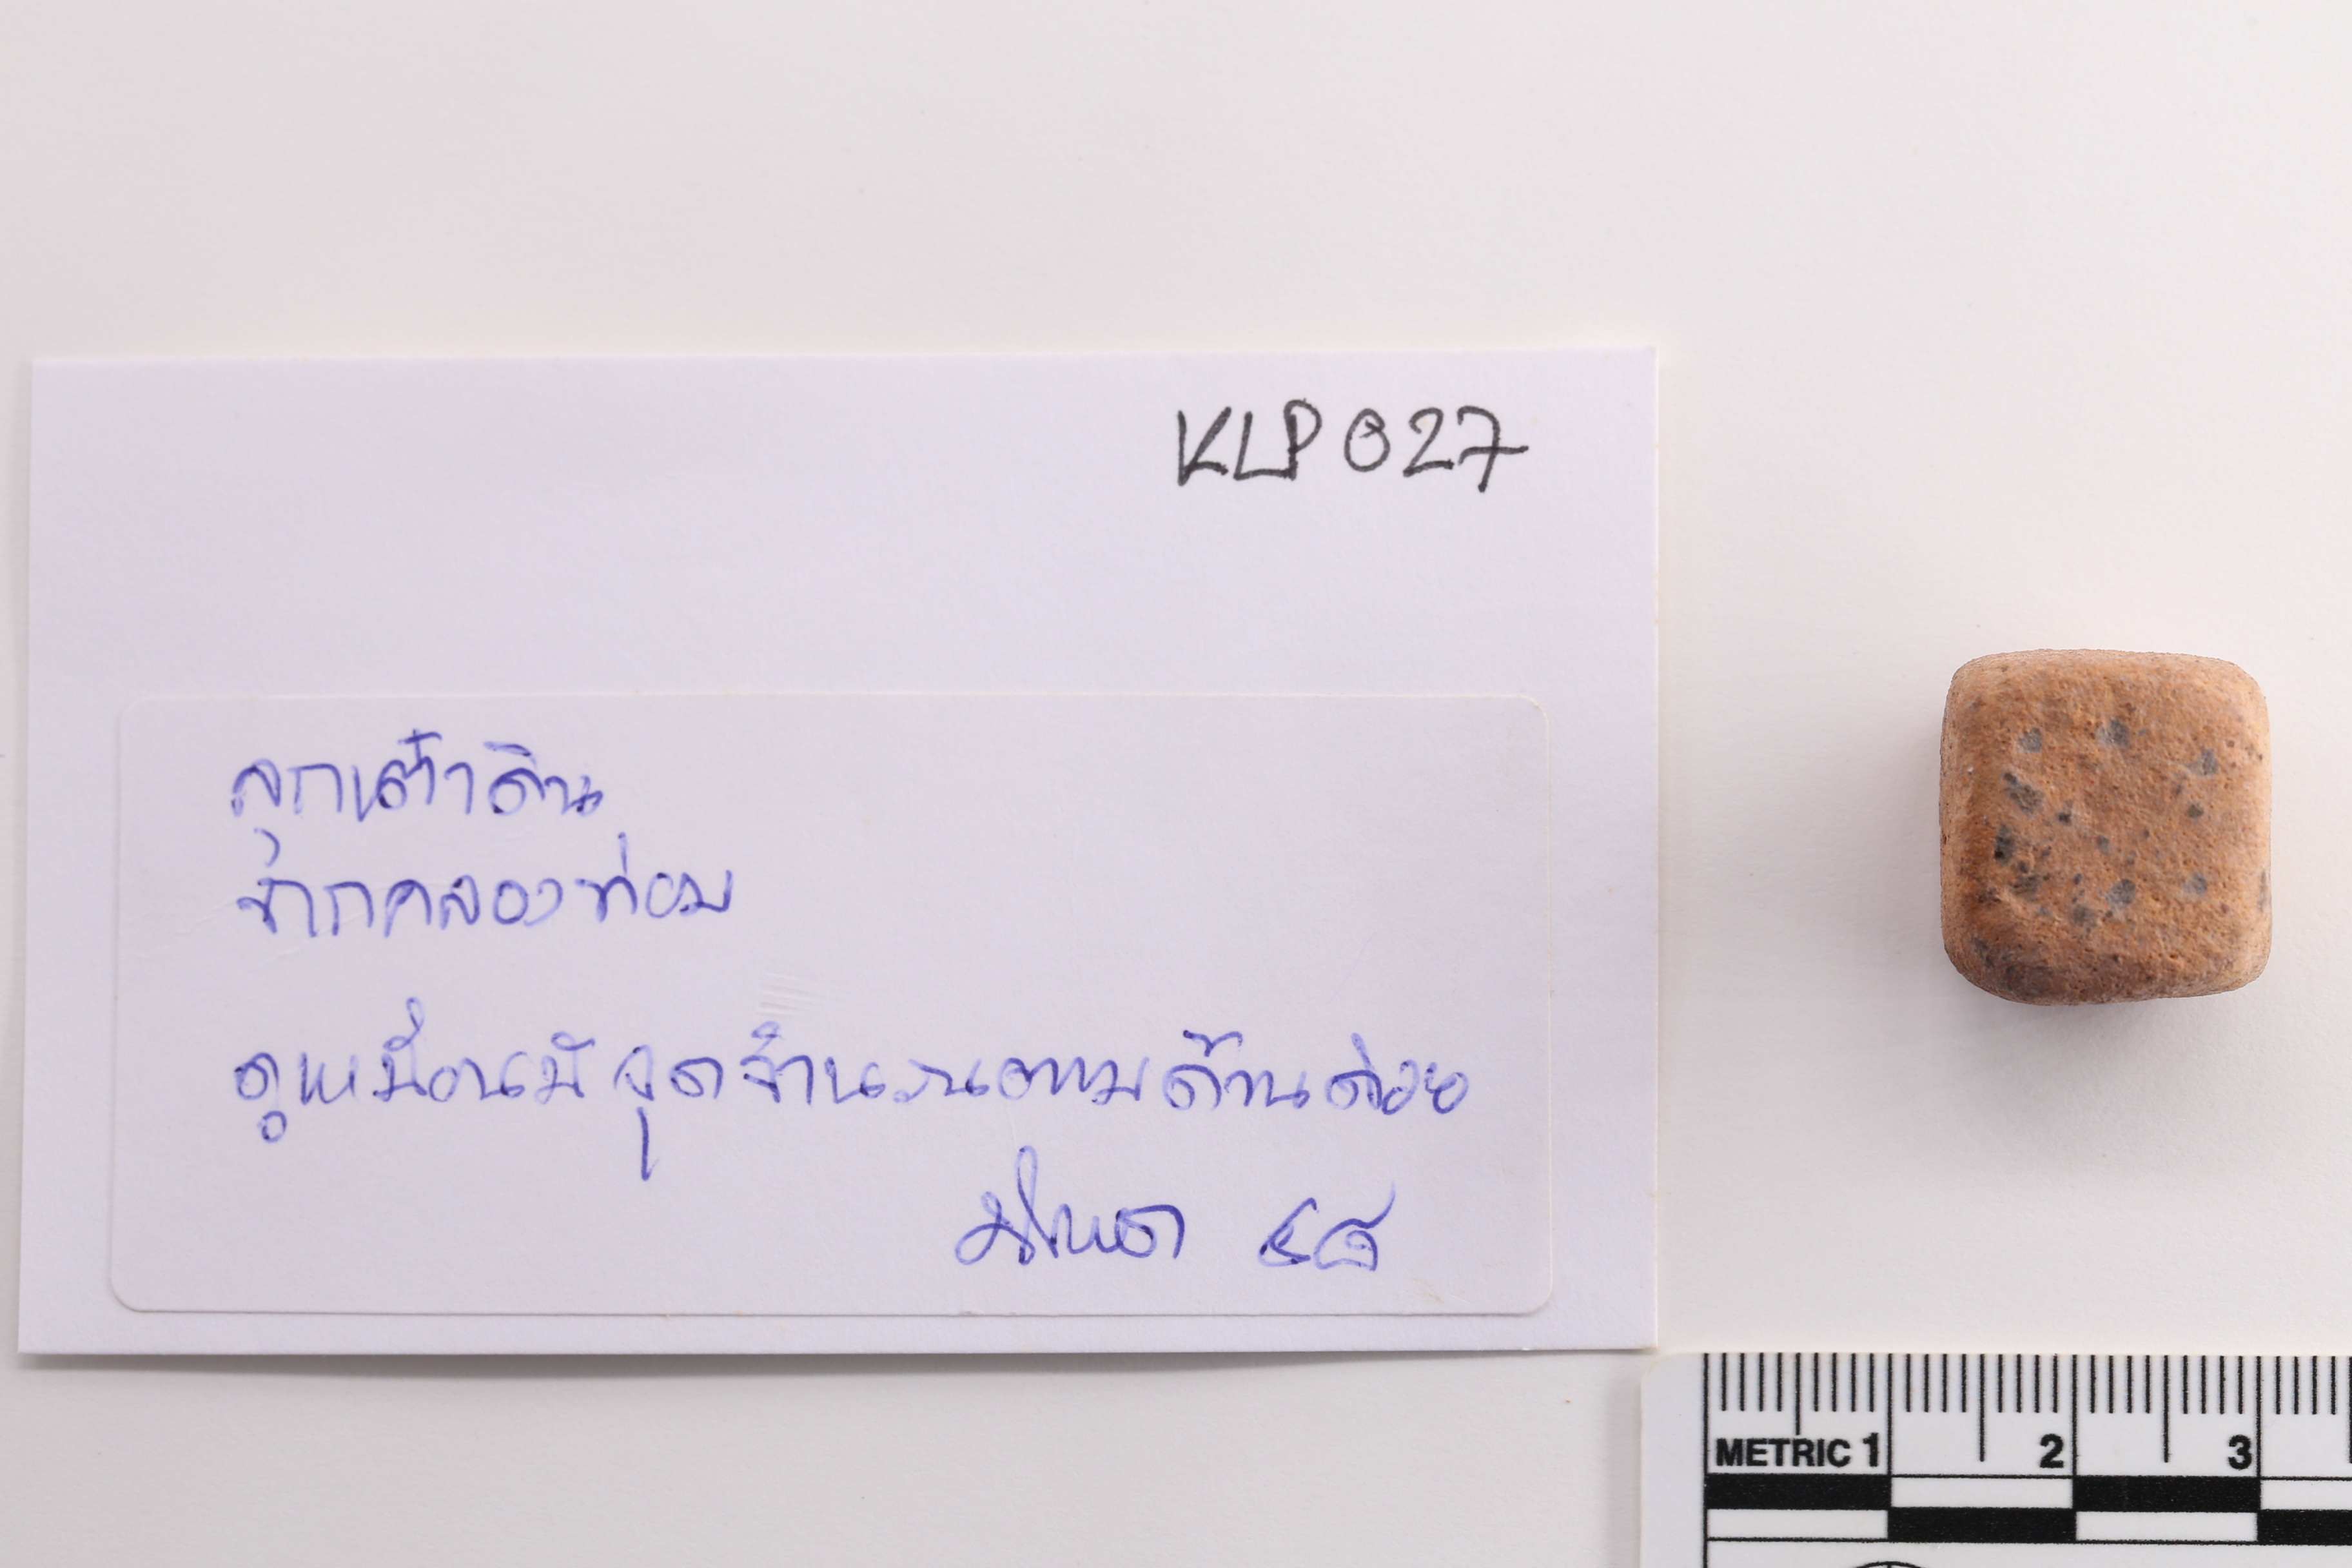 KLP 027
ลูกเต๋าดิน
จากคลองท่อม
ดูเหมือนมีจุดจำนวนตามด้านด้วย
มีนาคม ๔๘
METRIC 1 2 3